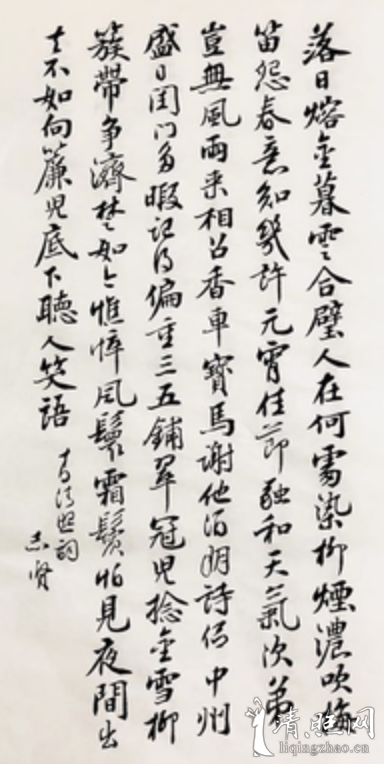 落日熔金暮雲合璧人在何處染柳煙濃吹梅
笛怨春意知幾許元宵佳節融和天氣次第
豈無風雨來相召香車寶馬謝他酒朋詩侶中州
盛日閨門多暇記得偏重三五鋪翠冠兒捻金雪柳
簇帶爭濟楚如今憔悴風鬟霜鬢怕見夜間出
去不如向簾兒底下聽人笑語
李清照詞
志賢
liqingzhao.cn